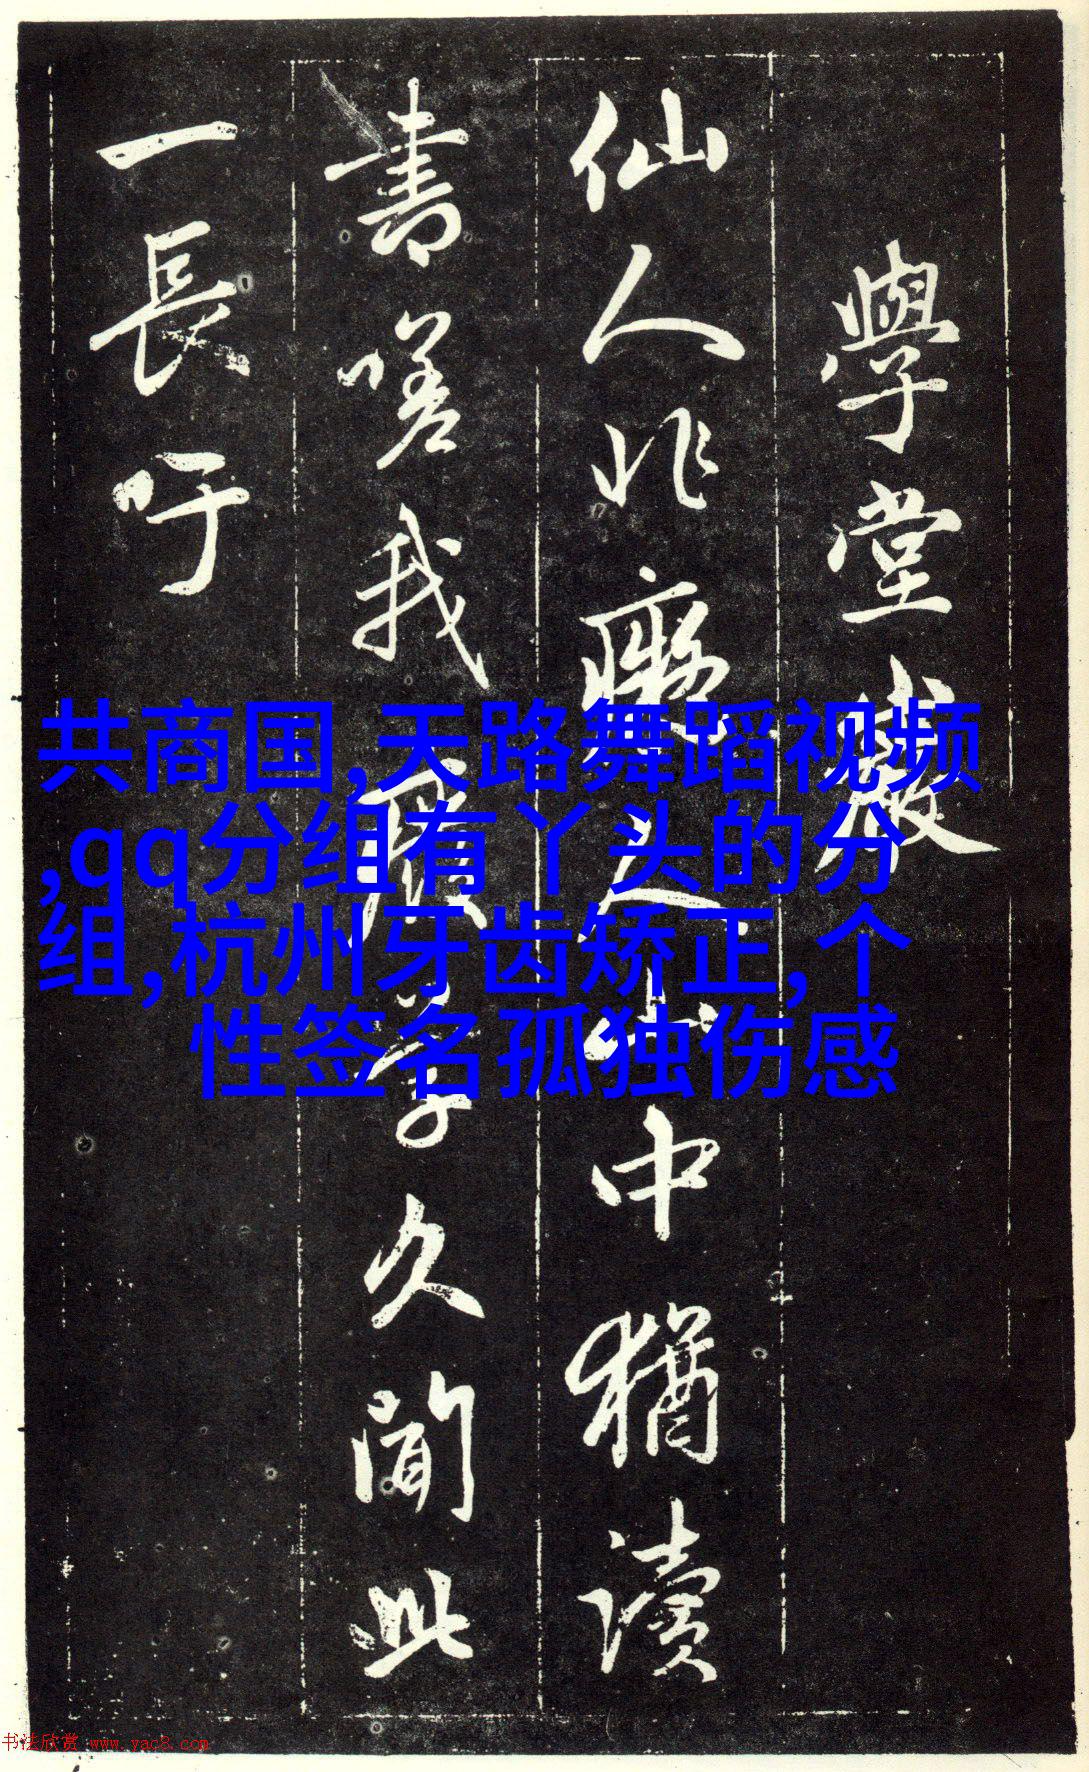 學堂巖
仙人非癡人山中猶讀
書嗟我廢學久聞此
一長吁
共商国,天路舞蹈视频
,qq分组有丫头的分
组,杭州牙齿矫正,个
性签名孤独伤感
书法欣赏 www.yac8.com